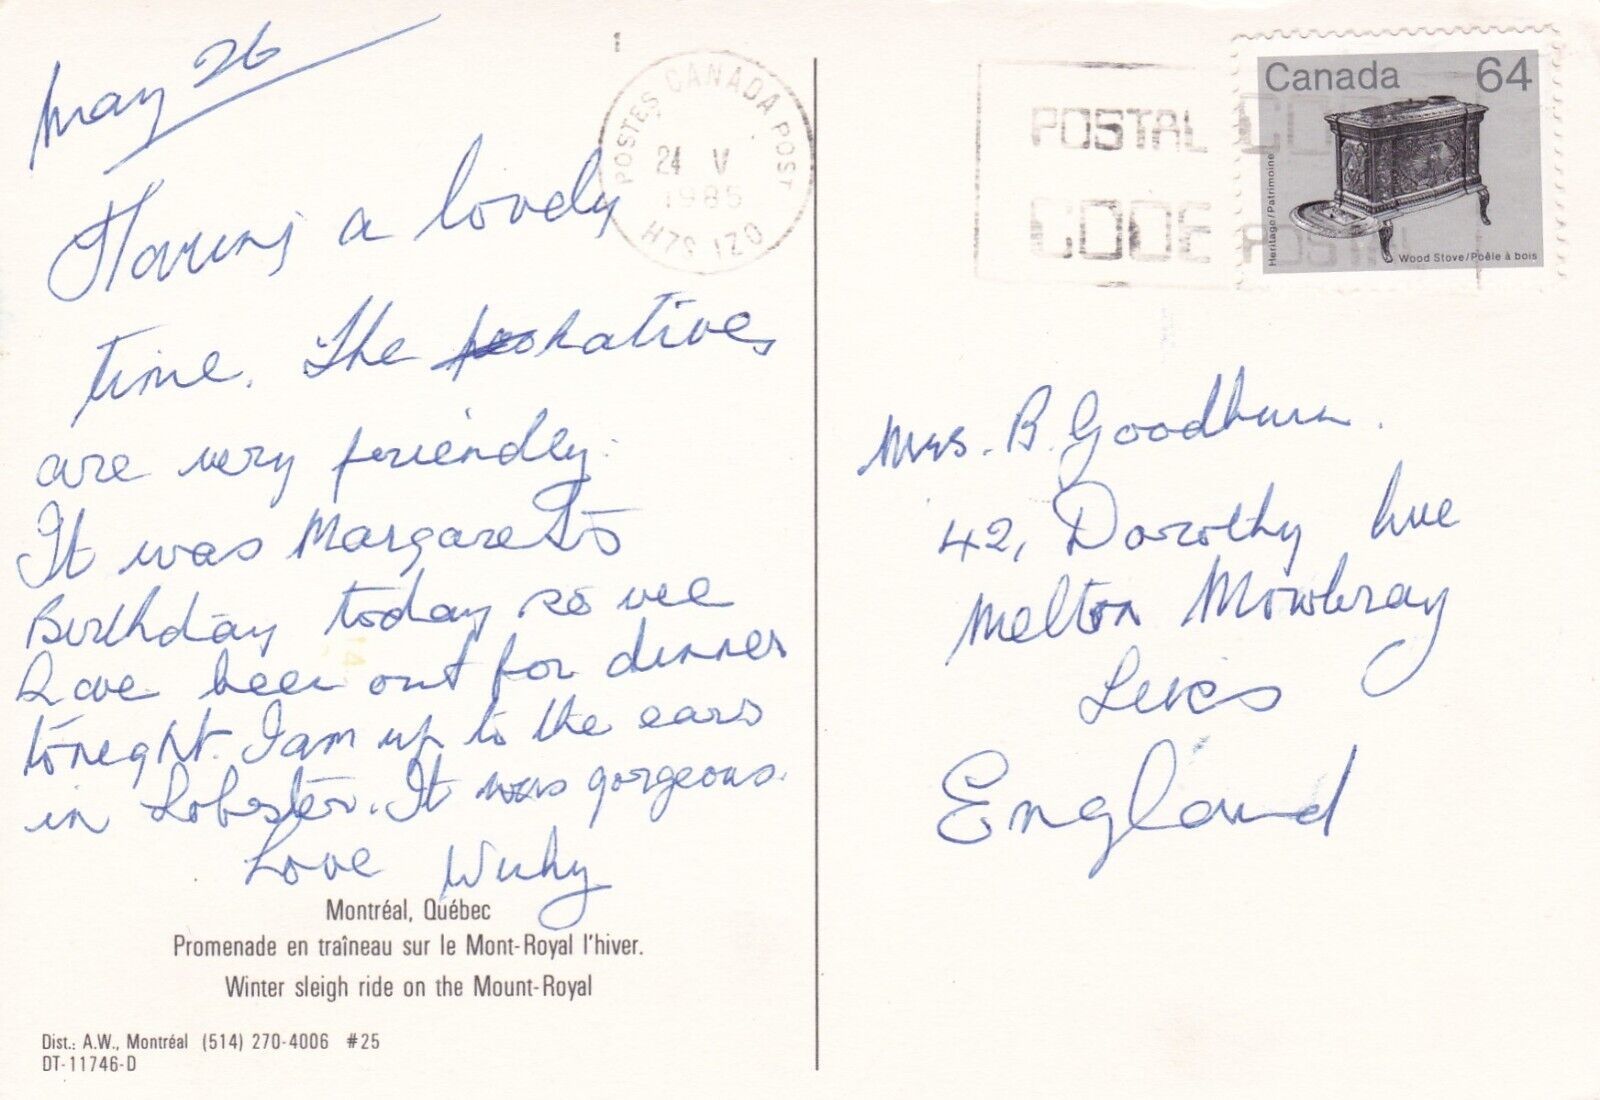 May 26
Having a lovely
time. The natives
are very friendly.
It was Margarets
Birthday today so we
have been out for dinner
tonight. I am up to the ears
in Lobster. It was gorgeous.
Love
Montréal, Québec
Promenade en traîneau sur le Mont-Royal l'hiver.
Winter sleigh ride on the Mount-Royal
Dist.: A.W., Montréal (514) 270-4006 #25
DT-11746-D
1
POSTES CANADA POST
24 V
1985
H7S 1Z0
POSTAL CODE
CODE POSTAL
Canada 64
Heritage/Patrimoine
Wood Stove/Poêle à bois
Mrs. B. Goodburn.
42, Dorothy Ave
Melton Mowbray
Leics
England